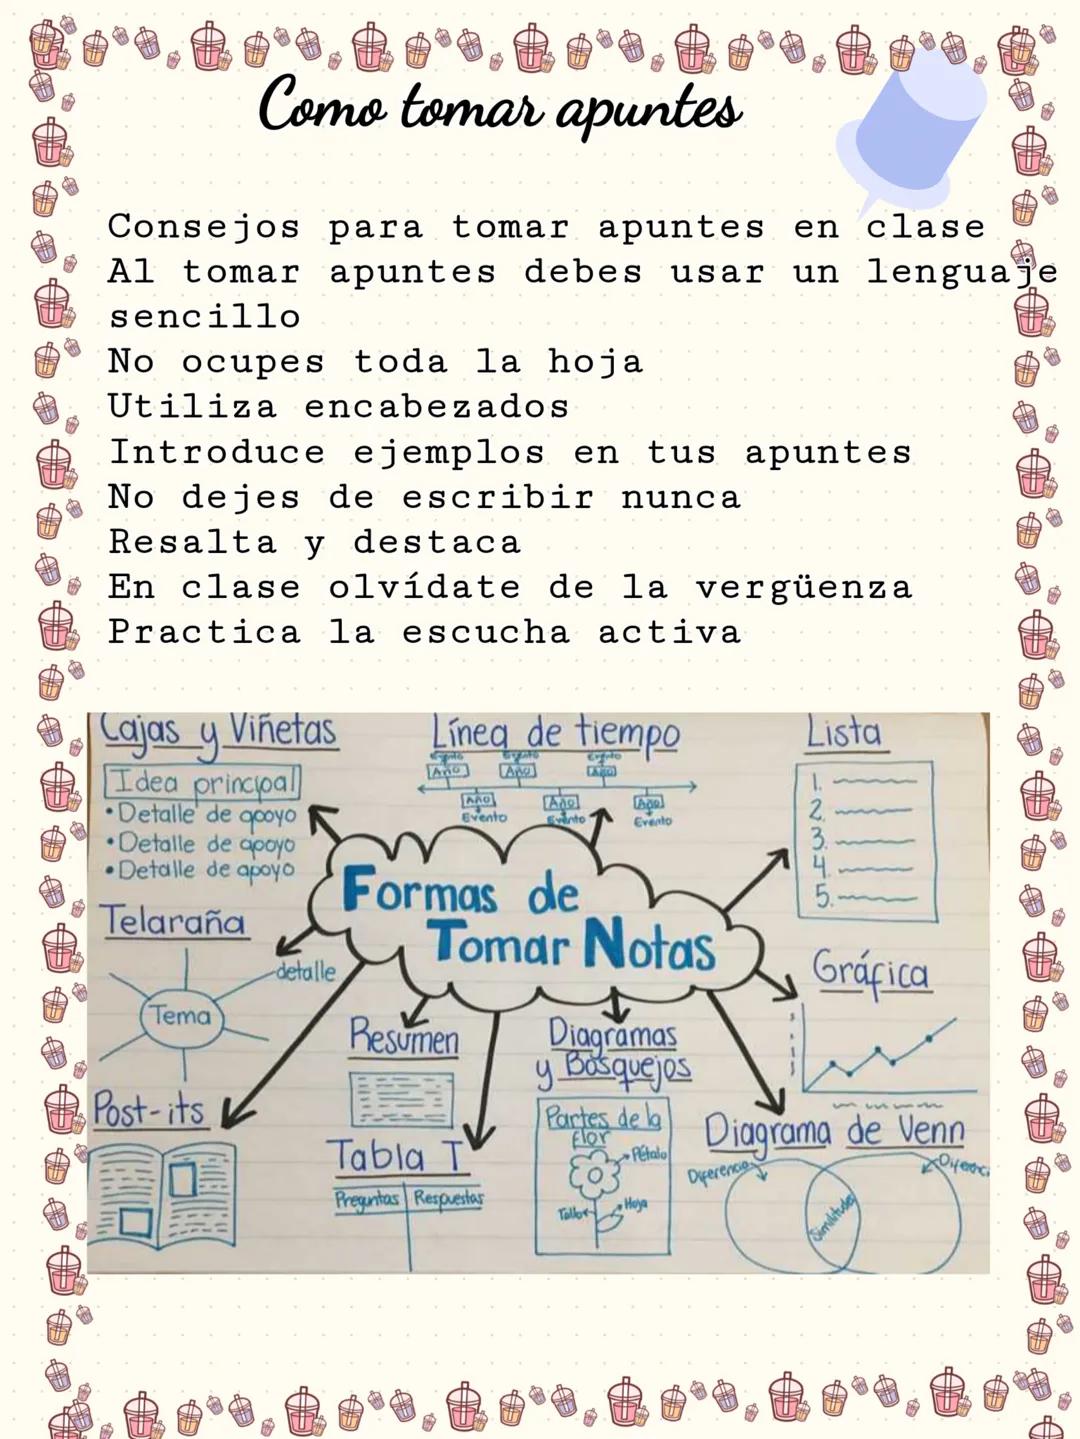 Como tomar apuntes
Consejos para tomar apuntes en clase
Al tomar apuntes debes usar un lenguaje
sencillo
No ocupes toda la hoja
Utiliza encabezados
Introduce ejemplos en tus apuntes
No dejes de escribir nunca
Resalta y destaca
En clase olvídate de la vergüenza
Practica la escucha activa
Cajas y Viñetas
Idea principal
• Detalle de apoyo
• Detalle de apoyo
• Detalle de apoyo
Línea de tiempo
Evento Evento Evento
Año Año Año
Año Año Año
Evento Evento Evento
Lista
1.
2.
3.
4.
5.
Formas de
Tomar Notas
Telaraña
detalle
Tema
Gráfica
Resumen
Diagramas
y Bosquejos
Partes de la
flor
Pétalo
Tallo
Hoja
Post-its
Tabla T
Preguntas Respuestas
Diagrama de Venn
Diferencia
Similitudes